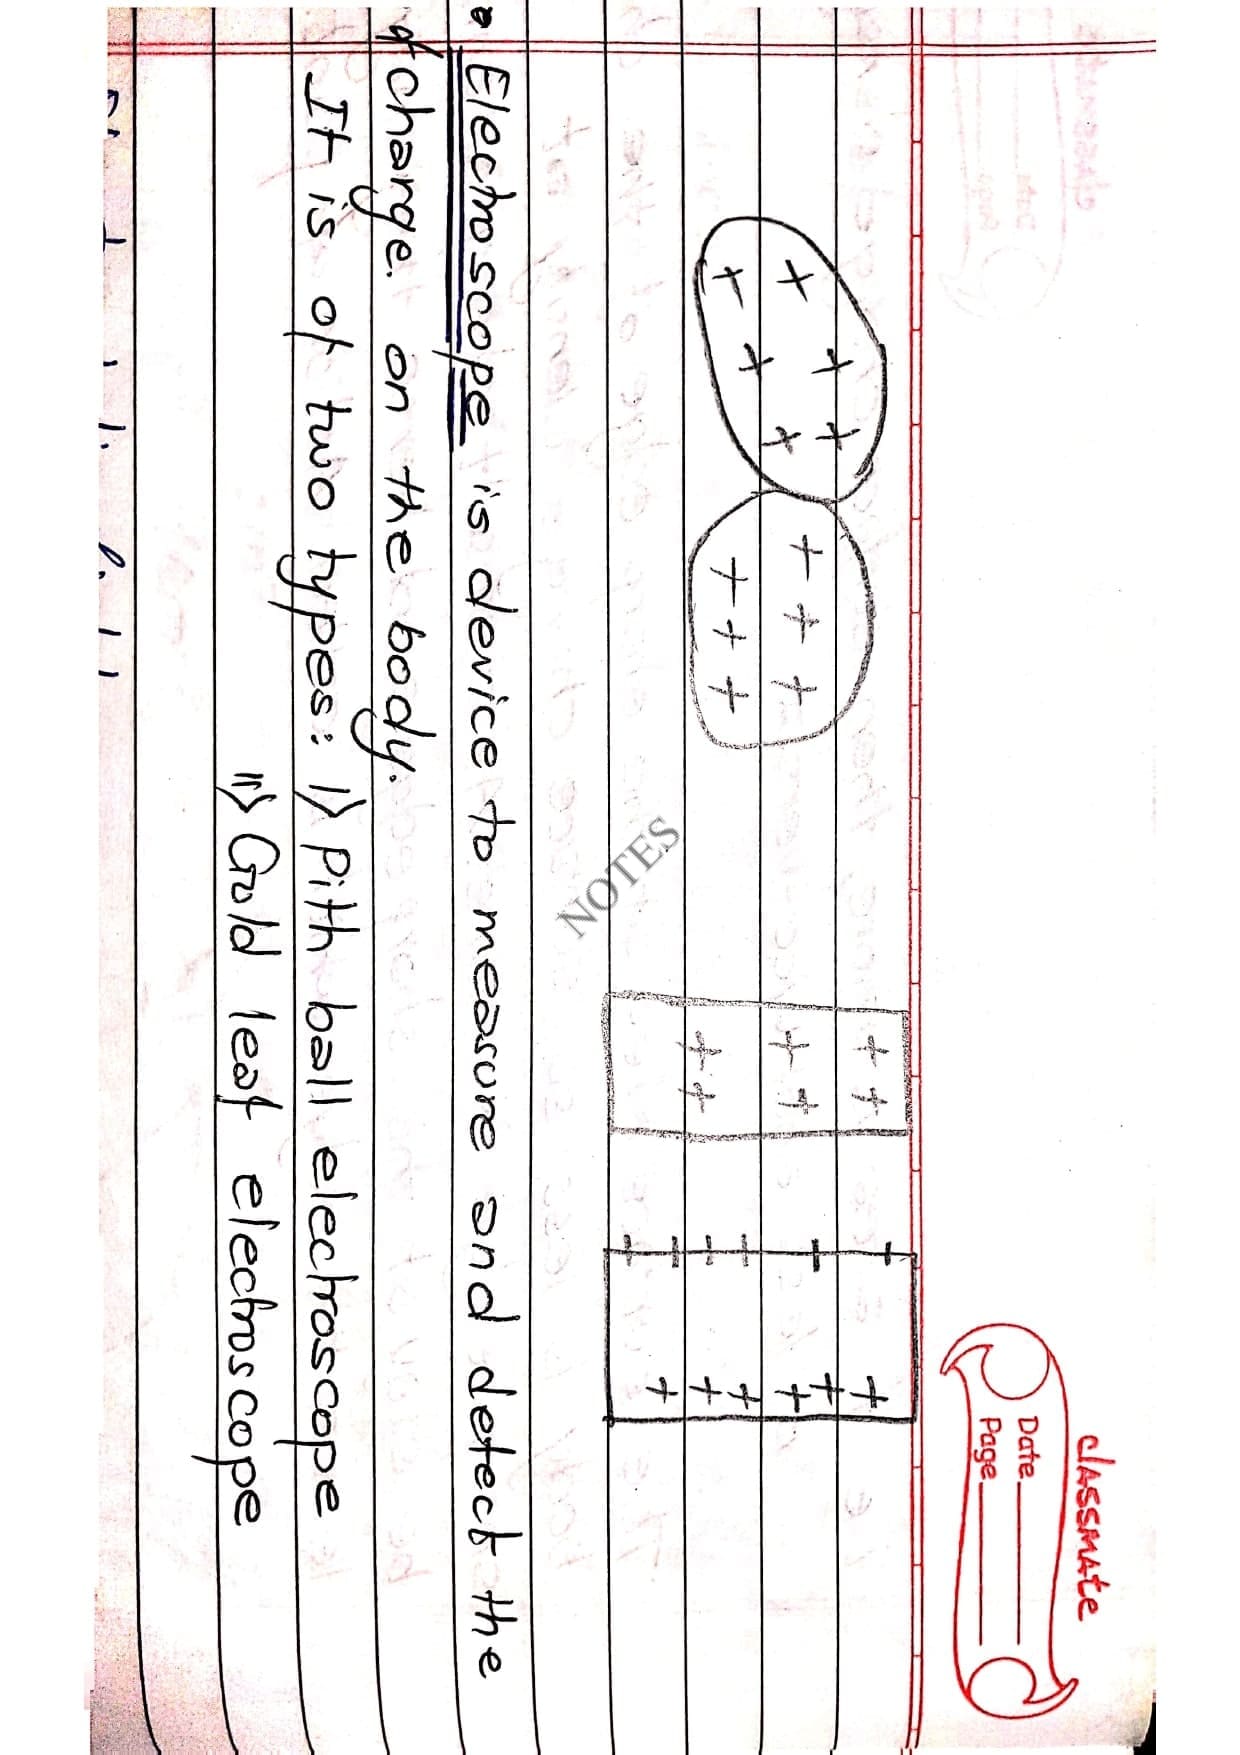 classmate
Date
Page
NOTES
• Electroscope is device to measure and detect the
of charge. on the body.
It is of two types: i) Pith ball electroscope
ii) Gold leaf electroscope